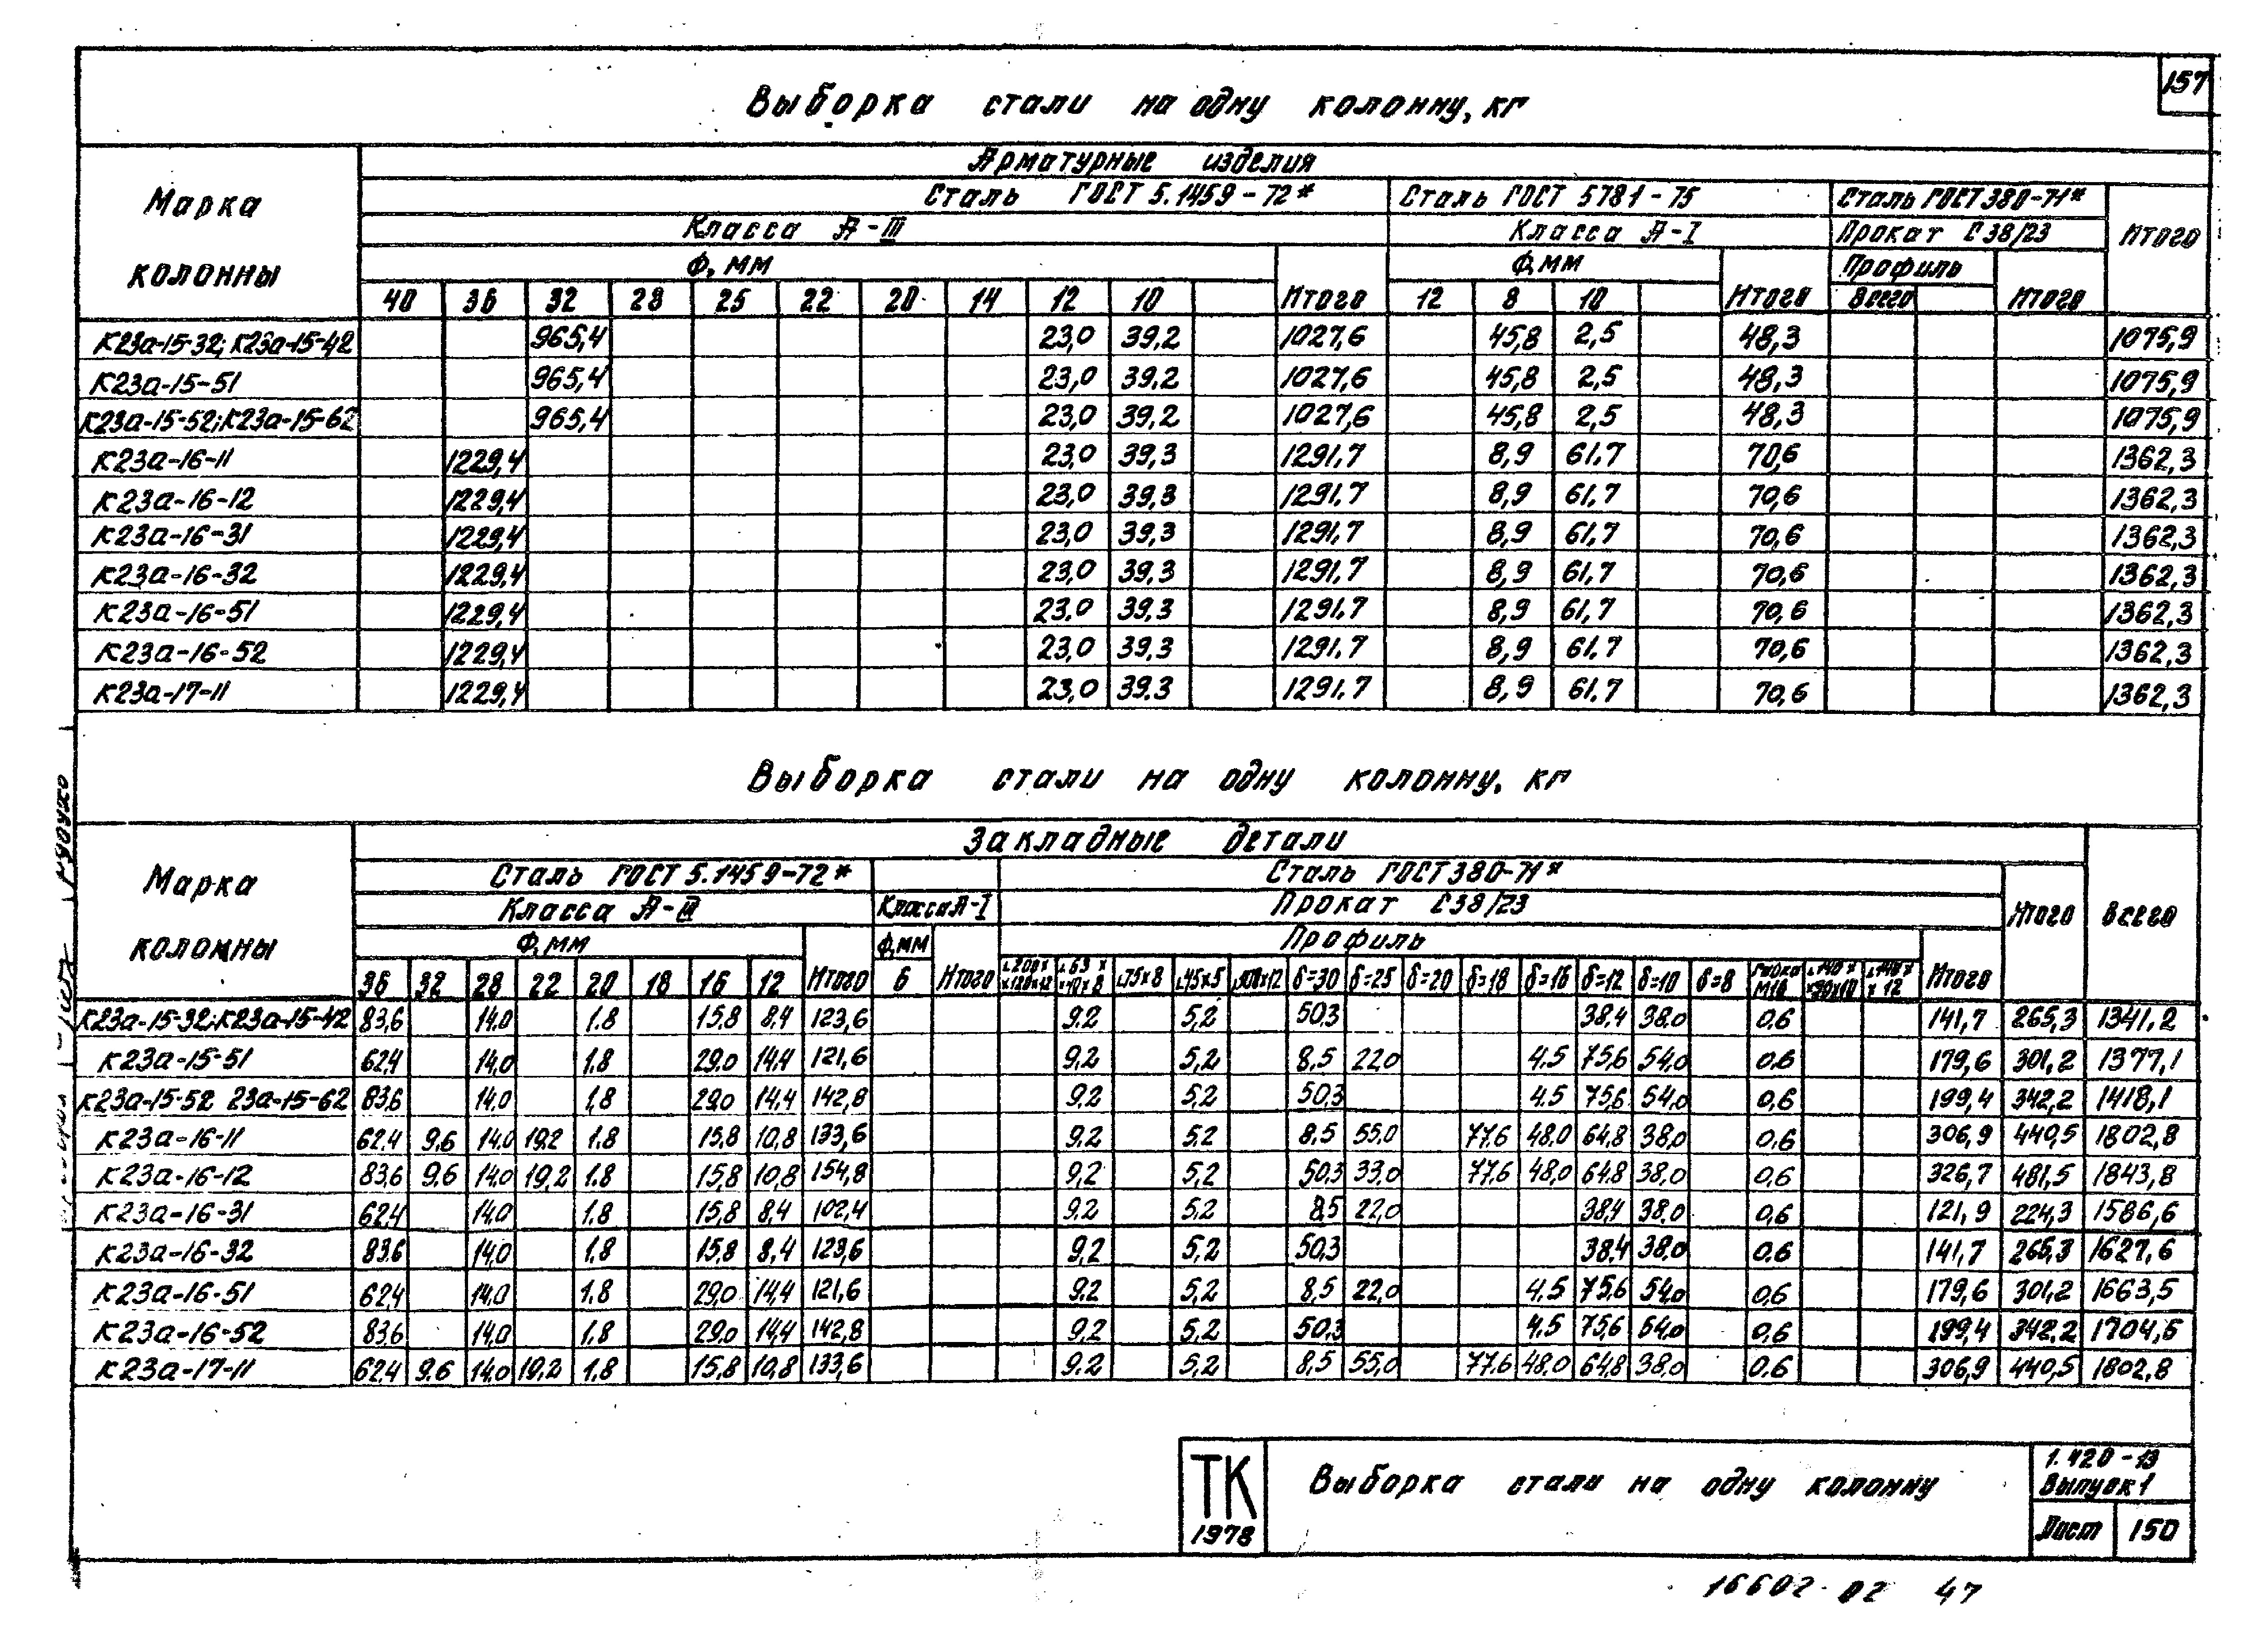 157
Выборка стали на одну колонну, кг
Марка колонны
Арматурные изделия
Сталь ГОСТ 5.1459-72* Сталь ГОСТ 5781-75 Сталь ГОСТ 380-71* Итого
Класса А-III Класса А-I Прокат С38/23
Ф, мм Итого Ф, мм Итого Профиль Итого
40 36 32 28 25 22 20 14 12 10 12 8 10 Всего
К23а-15-32; К23а-15-42 965,4 23,0 39,2 1027,6 45,8 2,5 48,3 1075,9
К23а-15-51 965,4 23,0 39,2 1027,6 45,8 2,5 48,3 1075,9
К23а-15-52; К23а-15-62 965,4 23,0 39,2 1027,6 45,8 2,5 48,3 1075,9
К23а-16-11 1229,4 23,0 39,3 1291,7 8,9 61,7 70,6 1362,3
К23а-16-12 1229,4 23,0 39,3 1291,7 8,9 61,7 70,6 1362,3
К23а-16-31 1229,4 23,0 39,3 1291,7 8,9 61,7 70,6 1362,3
К23а-16-32 1229,4 23,0 39,3 1291,7 8,9 61,7 70,6 1362,3
К23а-16-51 1229,4 23,0 39,3 1291,7 8,9 61,7 70,6 1362,3
К23а-16-52 1229,4 23,0 39,3 1291,7 8,9 61,7 70,6 1362,3
К23а-17-11 1229,4 23,0 39.3 1291,7 8,9 61,7 70,6 1362,3
Выборка стали на одну колонну, кг
Марка колонны
Закладные детали
Сталь ГОСТ 5.1459-72* Сталь ГОСТ 380-71* Итого Всего
Класса А-III Класса А-I Прокат С38/23
Ф, мм Итого Ф, мм Итого Профиль Итого
36 32 28 22 20 18 16 12 6 ∟200× ×120×12 ∟63× ×40×8 ∟75×8 ∟45×5 δ=30 δ=25 δ=20 δ=18 δ=16 δ=12 δ=10 δ=8 Гайка М16 ∟140× ×90×10 ∟140× ×12
К23а-15-32; К23а-15-42 83,6 14.0 1.8 15,8 8,4 123,6 9.2 5,2 50,3 38,4 38.0 0,6 141,7 265,3 1341,2
К23а-15-51 62,4 14,0 1.8 29,0 14,4 121,6 9,2 5,2 8,5 22,0 4.5 75,6 54,0 0,6 179,6 301,2 1377,1
К23а-15-52 23а-15-62 83,6 14,0 1,8 29,0 14,4 142,8 9,2 5,2 50,3 4.5 75,6 54,0 0,6 199,4 342,2 1418,1
К23а-16-11 62,4 9,6 14.0 19,2 1.8 15,8 10,8 133,6 9,2 5,2 8,5 55,0 77,6 48,0 64,8 38,0 0,6 306,9 440,5 1802,8
К23а-16-12 83,6 9.6 14,0 19,2 1.8 15,8 10,8 154,8 9,2 5,2 50,3 33,0 77,6 48,0 64,8 38,0 0,6 326,7 481,5 1843,8
К23а-16-31 62,4 14,0 1.8 15,8 8,4 102,4 9,2 5,2 8,5 22,0 38,4 38,0 0,6 121,9 224,3 1586,6
К23а-16-32 83,6 14,0 1,8 15,8 8,4 123,6 9,2 5,2 50,3 38,4 38,0 0,6 141,7 265,3 1627,6
К23а-16-51 62,4 14,0 1.8 29,0 14,4 121,6 9,2 5,2 8,5 22,0 4,5 75,6 54,0 0,6 179,6 301,2 1663,5
К23а-16-52 83,6 14,0 1.8 29,0 14,4 142,8 9,2 5,2 50,3 4,5 75,6 54,0 0,6 199,4 342,2 1704,5
К23а-17-11 62,4 9.6 14,0 19,2 1.8 15,8 10,8 133,6 9.2 5,2 8,5 55,0 77,6 48,0 64,8 38,0 0,6 306,9 440,5 1802,8
ТК
1978
Выборка стали на одну колонну
1.420-13
Выпуск 1
Лист 150
16602-02 47